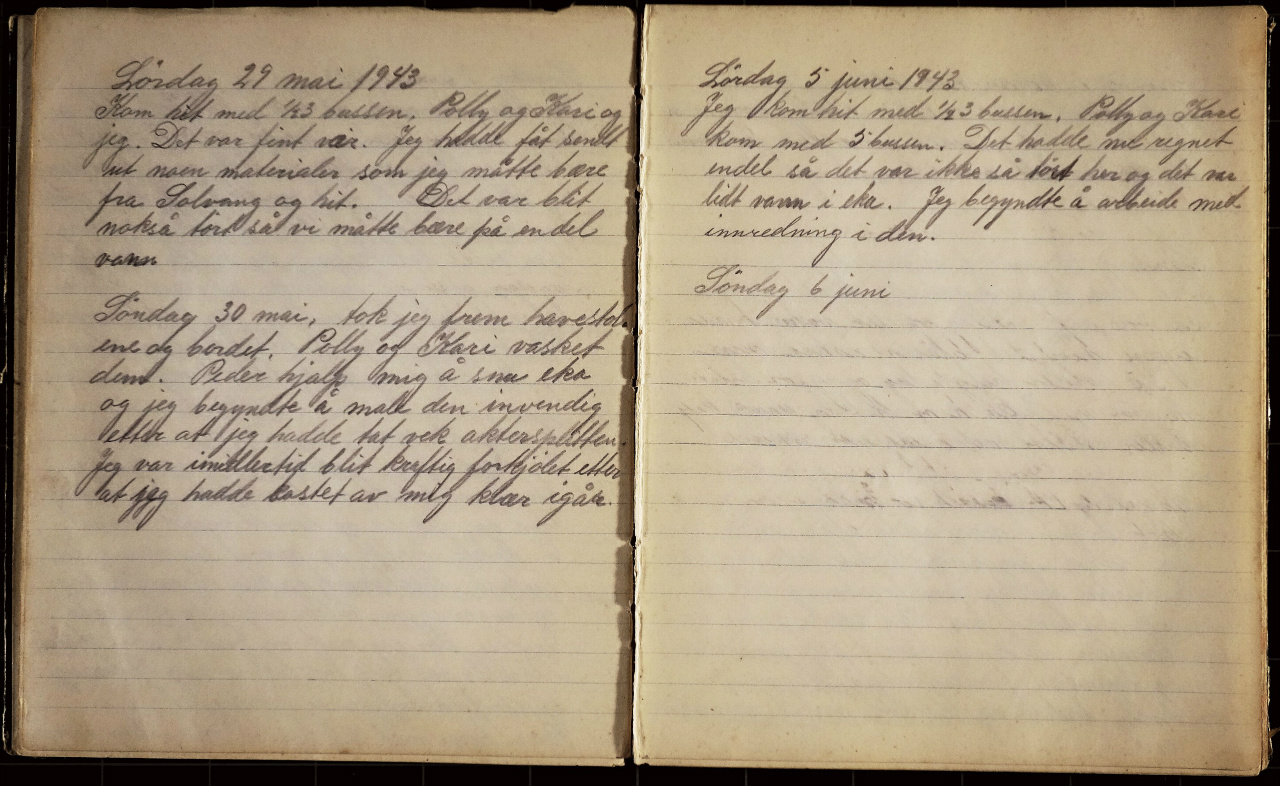 Lördag 29 mai 1943
Kom hit med ½3 bussen, Polly og Kari og
jeg. Det var fint vær. Jeg hadde fåt sendt
ut noen materialer som jeg måtte bære
fra Solvang og hit. Det var blit
nokså tört så vi måtte bære på en del
vann
Söndag 30 mai, tok jeg frem havestol-
ene og bordet. Polly og Kari vasket
dem. Peder hjalp mig å snu eka
og jeg begyndte å male den invendig
etter at jeg hadde tat vek aktersplitten.
Jeg var imidlertid blit kraftig forkjölet etter
at jeg hadde kastet av mig klær igår.
Lördag 5 juni 1943
Jeg kom hit med ½3 bussen. Polly og Kari
kom med 5 bussen. Det hadde nu regnet
endel så det var ikke så tört her og det var
lidt vann i eka. Jeg begyndte å arbeide med
innredning i den.
Söndag 6 juni